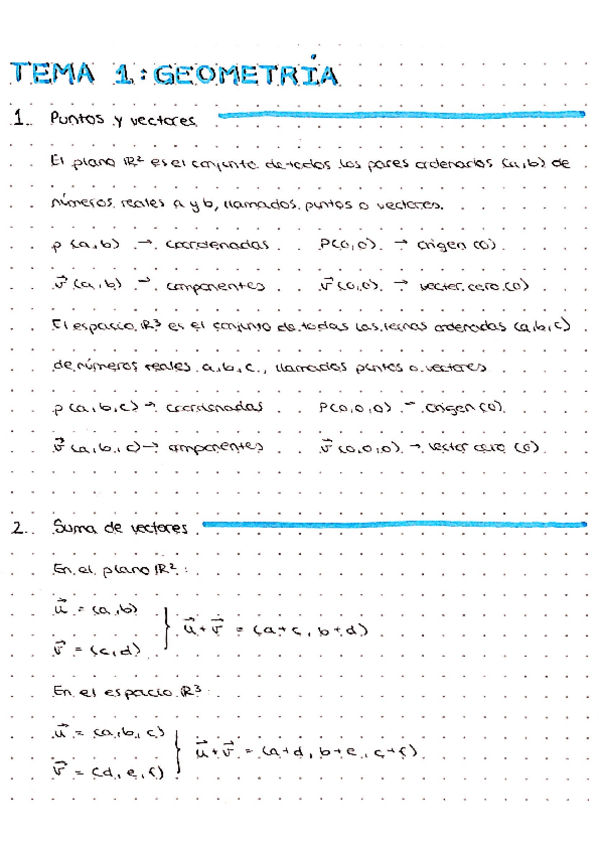 TEMA 1: GEOMETRÍA
1. Puntos y vectores
El plano ℝ² es el conjunto de todos los pares ordenados (a,b) de
números reales a y b, llamados puntos o vectores.
p (a,b) → coordenadas P(0,0) → origen (0)
v⃗ (a,b) → componentes v⃗ (0,0) → vector cero (0)
El espacio ℝ³ es el conjunto de todas las ternas ordenadas (a,b,c)
de números reales a,b,c, llamados puntos o vectores
p (a,b,c) → coordenadas P(0,0,0) → origen (0)
v⃗ (a,b,c) → componentes v⃗ (0,0,0) → vector cero (0)
2. Suma de vectores
En el plano ℝ²:
u⃗ = (a,b)
v⃗ = (c,d)
} u⃗ + v⃗ = (a+c, b+d)
En el espacio ℝ³:
u⃗ = (a,b,c)
v⃗ = (d,e,f)
} u⃗ + v⃗ = (a+d, b+e, c+f)